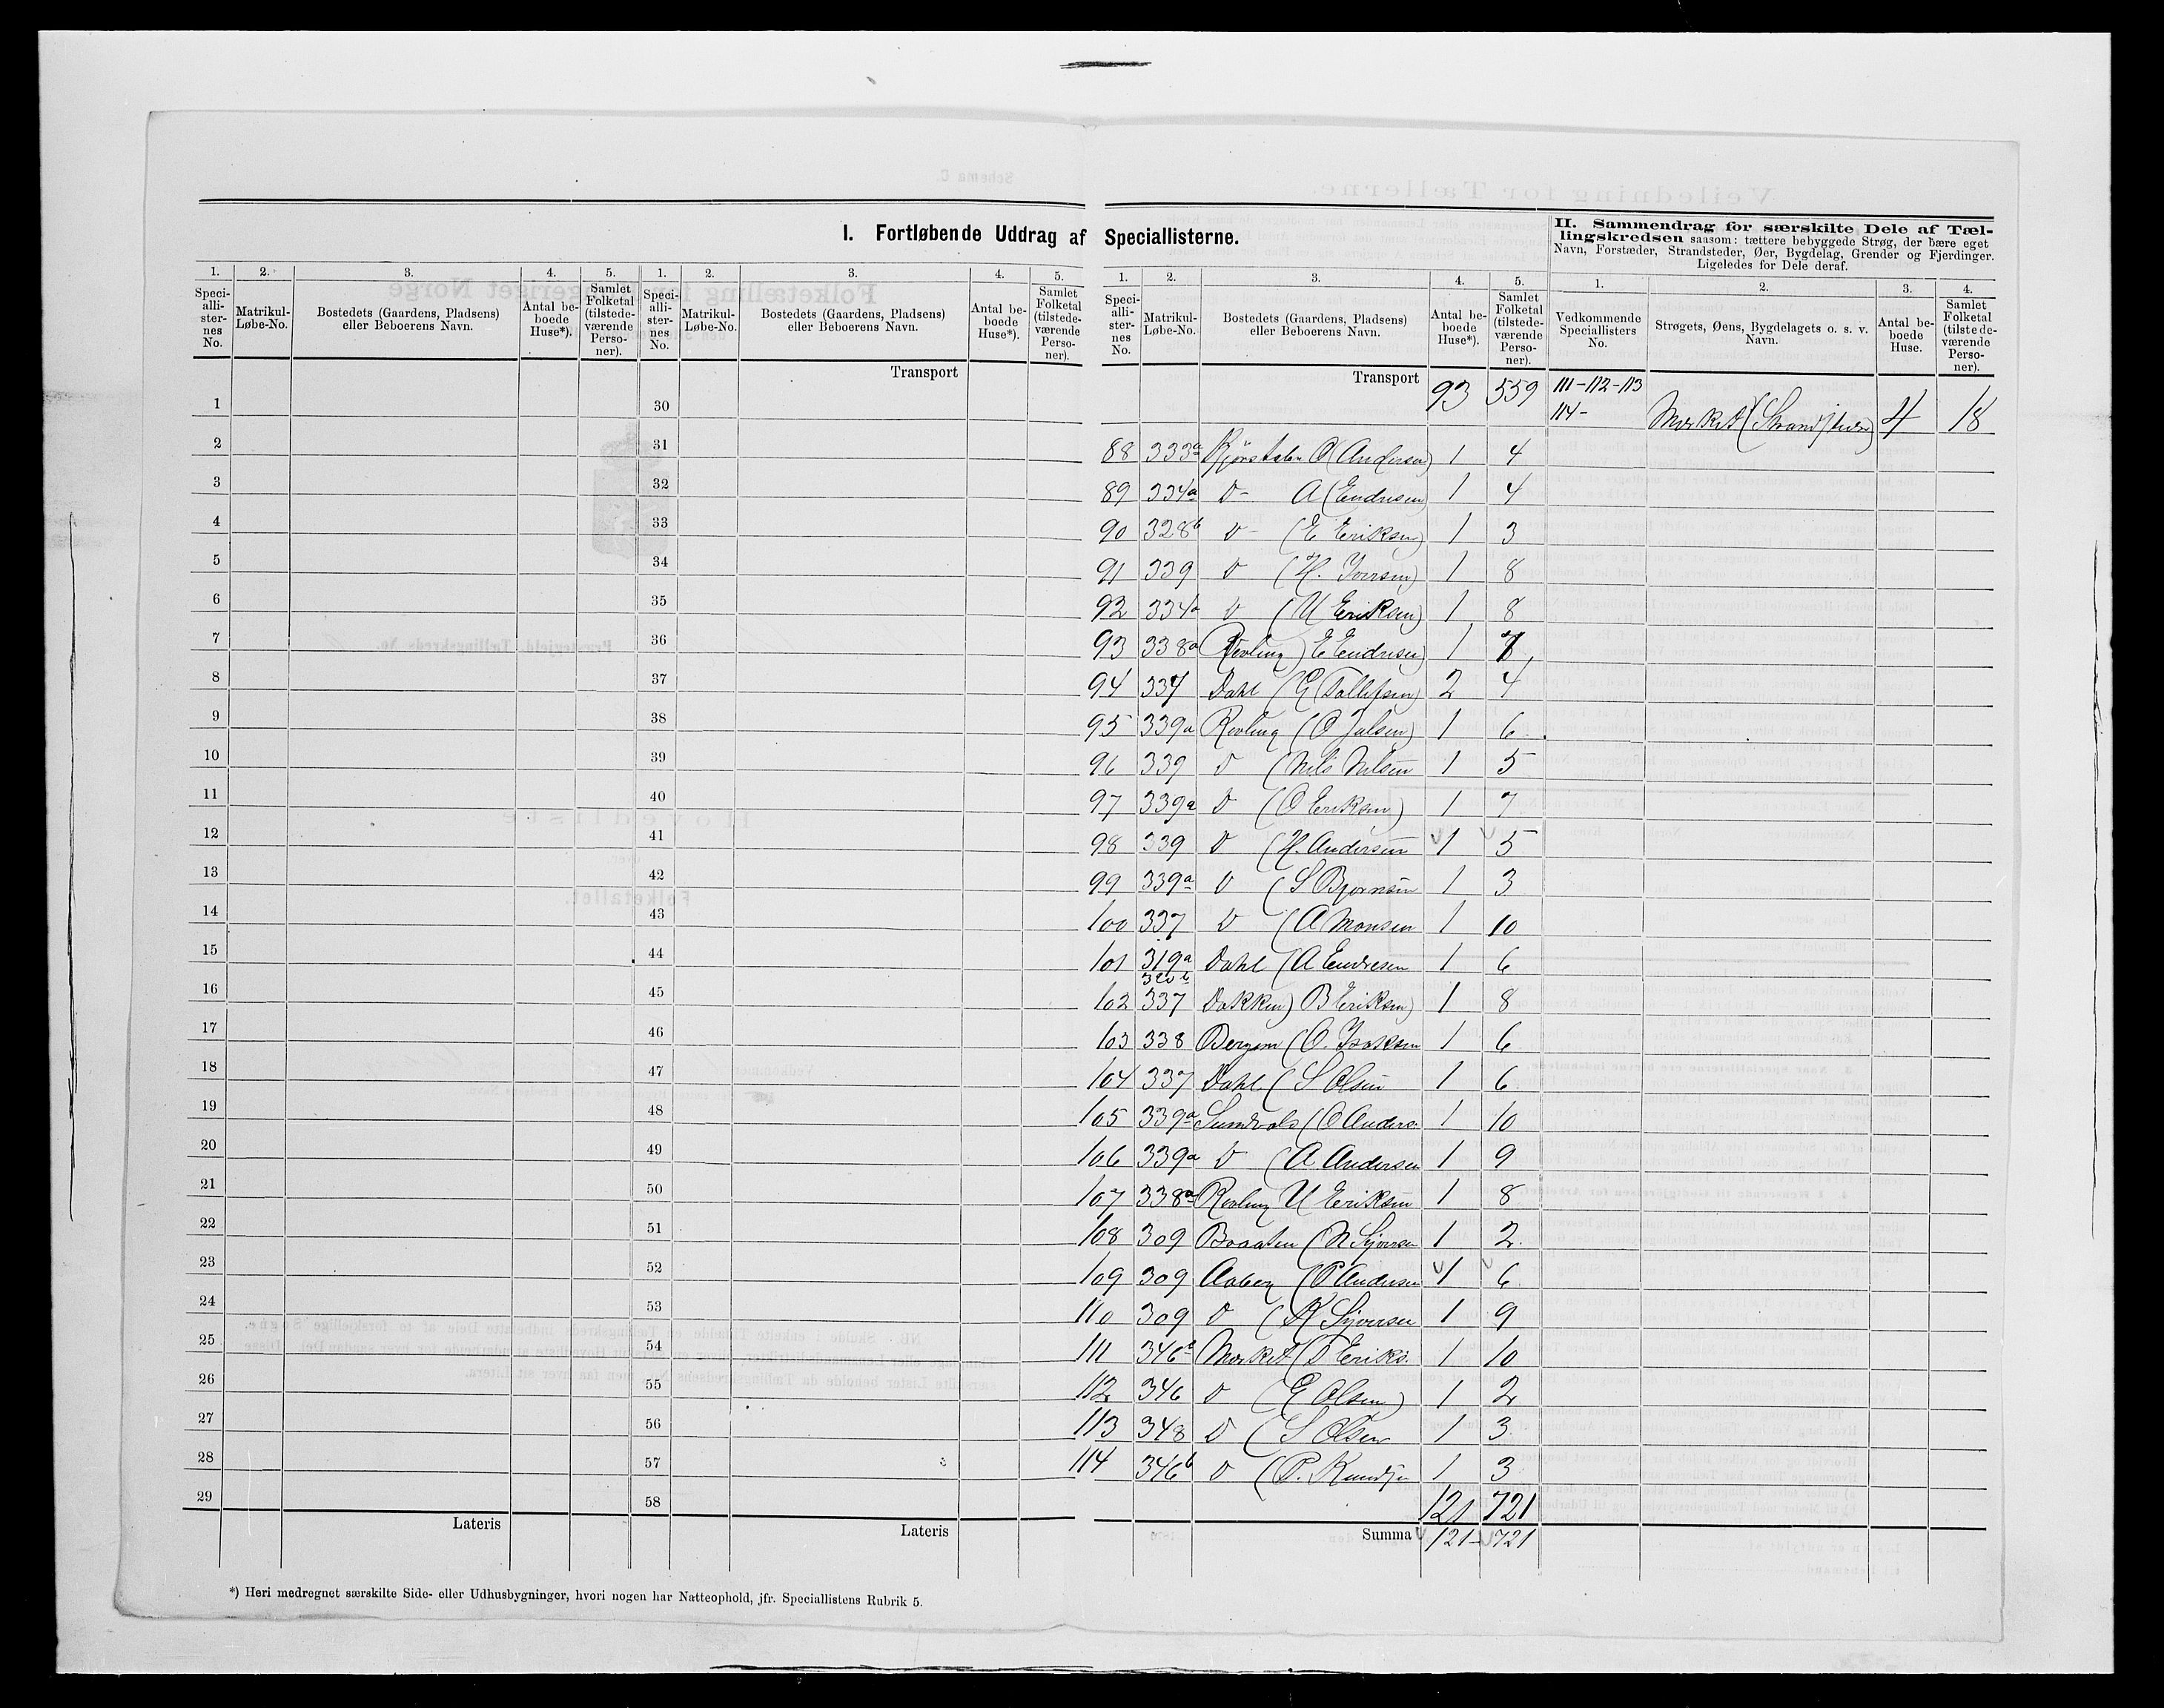 I. Fortløbende Uddrag af Speciallisterne.
II. Sammendrag for særskilte Dele af Tællingskredsen saasom: tættere bebyggede Strøg, der bære eget
Navn, Forstæder, Strandsteder, Øer, Bygdelag, Grender og Fjerdinger.
Ligeledes for Dele deraf.
1. 2. 3. 4. 5. 1. 2. 3. 4. 5. 1. 2. 3. 4. 5. 1. 2. 3. 4.
Speciallisternes No. Matrikul-Løbe-No. Bostedets (Gaardens, Pladsens) eller Beboerens Navn. Antal beboede Huse*). Samlet Folketal (tilstedeværende Personer).
Speciallisternes No. Matrikul-Løbe-No. Bostedets (Gaardens, Pladsens) eller Beboerens Navn. Antal beboede Huse*). Samlet Folketal (tilstedeværende Personer).
Speciallisternes No. Matrikul-Løbe-No. Bostedets (Gaardens, Pladsens) eller Beboerens Navn. Antal beboede Huse*). Samlet Folketal (tilstedeværende Personer).
Vedkommende Speciallisters No. Strøgets, Øens, Bygdelagets o. s. v. Navn. Antal beboede Huse. Samlet Folketal (tilstedeværende Personer).
Transport
1
2
3
4
5
6
7
8
9
10
11
12
13
14
15
16
17
18
19
20
21
22
23
24
25
26
27
28
29
Lateris
30
31
32
33
34
35
36
37
38
39
40
41
42
43
44
45
46
47
48
49
50
51
52
53
54
55
56
57
58
Lateris
Transport 93 559
88 333a (Andersen) 1 4
89 334a D- A (Endresen 1 4
90 328b D- (E Eriksen) 1 3
91 339 D (H. Iversen) 1 8
92 334a D (U Eriksen) 1 8
93 338a E Endresen) 1 7
94 337 Dahl (E Tollefsen) 2 4
95 339a Revling (O Julsen) 1 6
96 339 D (Nils Nilsen 1 5
97 339a D (O Eriksen) 1 7
98 339 D (H. Andersen 1 5
99 339a D (S Bjørnsen 1 3
100 337 D (A Monsen 1 10
101 319a 320b Dahl (A Endresen 1 6
102 337 Bakken) B Eriksen) 1 8
103 338 Bergem (O. Isaksen 1 6
104 337 Dahl (S Olsen 1 6
105 339a (O Anders. 1 10
106 339a D (A Andersen 1 9
107 338a Revling U Eriksen 1 8
108 309 Braaten (N Syversen 1 2
109 309 Aaberg (P Andersen 1 6
110 309 D (K Syversen 1 9
111 346a Morket ( Eriks. 1 10
112 346 D (E Olsen) 1 2
113 348 D (S Olsen 1 3
114 346b D (P. Knudsen 1 3
121 721
Summa 121 - 721
111-112-113
114- Morket (Strandsted) 4 18
*) Heri medregnet særskilte Side- eller Udhusbygninger, hvori nogen har Natteophold, jfr. Speciallistens Rubrik 5.